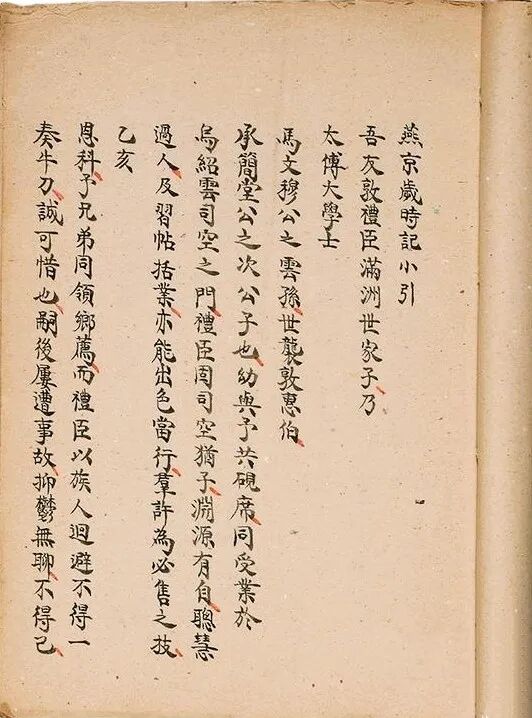 燕京歲時記小引
吾友敦禮臣滿洲世家子乃
太傅大學士
馬文穆公之雲孫世襲敦惠伯
承簡堂公之次公子也幼與予共硯席同受業於
烏紹雲司空之門禮臣固司空猶子淵源有自聰慧
過人及習帖括業亦能出色當行羣許為必售之技
乙亥
恩科予兄弟同領鄉薦而禮臣以族人迴避不得一
奏牛刀誠可惜也嗣後屢遭事故抑鬱無聊不得已